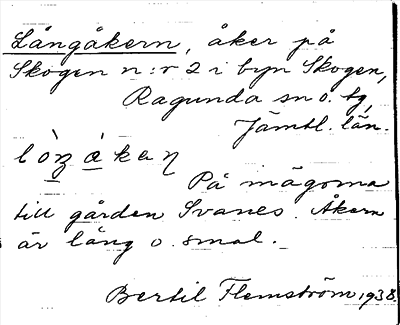 Långåkern, åker på
Skogen n:r 2 i byn Skogen,
Ragunda sn o. tg,
Jämtl. län.
På mägorna
till gården Svanes. Åkern
är lång o. smal.
Bertil Flemström, 1938.